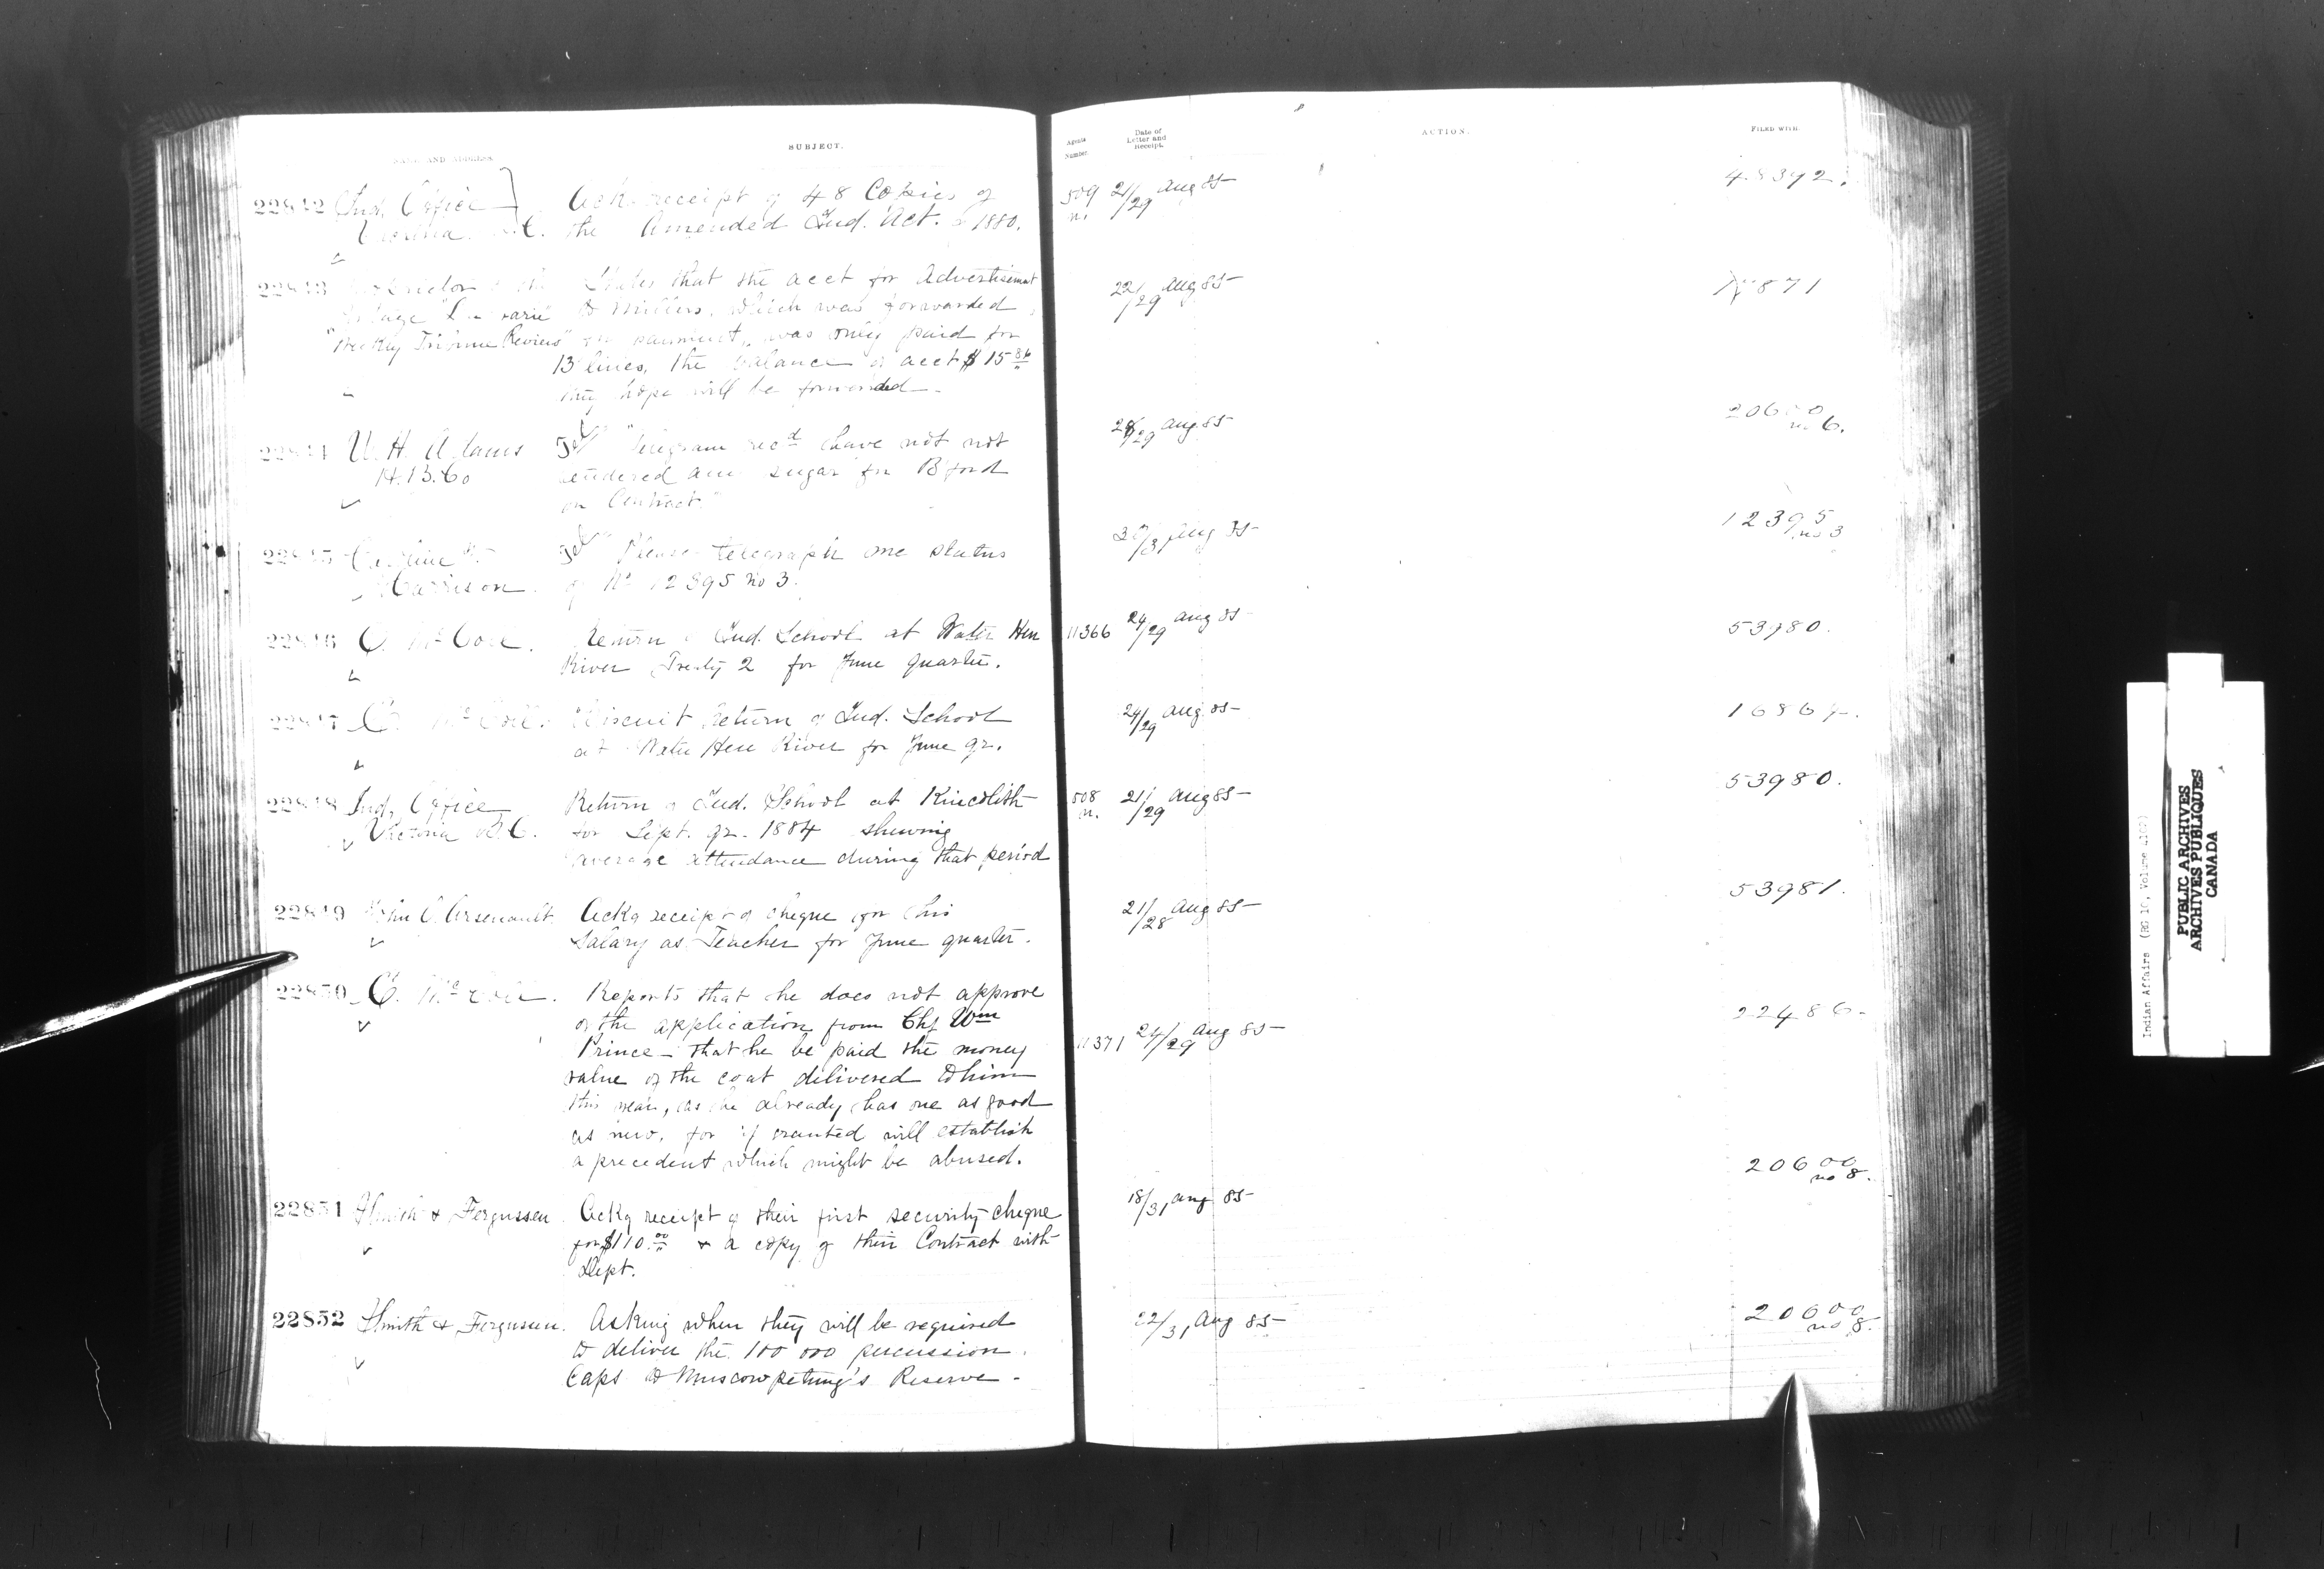 NAME AND ADDRESS.
SUBJECT.
Agents Number.
Date of Letter and Receipt.
ACTION.
FILED WITH.
22842 Ind. Office Ack. receipt of 48 Copies of 509 21/29 Aug 85 48392.
Victoria B.C. the Amended Ind. Act. 1880. n.
22843 States that the acct for Advertisement 22/29 Aug 85 871
to Millers, which was forwarded
"Weekly Tribune Review" for payment, was only paid for
13 lines, the balance of acct $15
they hope will be forwarded
22844 W. H. Adams Tel "Telegram recd have not not 28/29 Aug 85 20600 no 6.
H.B.Co tendered any sugar for B'ford
on Contract."
22845 Tel "Please telegraph me status Aug 85 12395 no 3
Harrison. of No 12395 no 3.
22846 E. McColl. Return of Ind. School at Water Hen 11366 24/29 Aug 85 53980.
River Treaty 2 for June quarter.
22847 E. McColl. Biscuit Return of Ind. School 24/29 Aug. 85
at Water Hen River for June qr.
22848 Ind. Office Return of Ind. School at Kincolith 508 21/29 Aug 85 53980.
Victoria B.C. for Sept. qr. 1884 shewing n.
average attendance during that period
22849 John C. Arsenault. Ackg receipt of cheque for his 21/28 Aug 85 53981.
Salary as Teacher for June quarter.
22850 E. McColl. Reports that he does not approve 22486
of the application from Chf Wm 11371 24/29 Aug 85
Prince - that he be paid the money
value of the coat delivered to him
this year, as he already has one as good
as new, for if granted will establish
a precedent which might be abused.
22851 Smith & Fergussen. Ackg receipt of their first security cheque 18/31 Aug 85 20600 no 8.
for $110.00 & a copy of their Contract with
Dept.
22852 Smith & Fergussen. Asking when they will be required 22/31 Aug 85 20600 no 8.
to deliver the 100 000 percussion
Caps to Muscowpetung's Reserve -
Indian Affairs (RG 10, Volume
PUBLIC ARCHIVES
ARCHIVES PUBLIQUES
CANADA